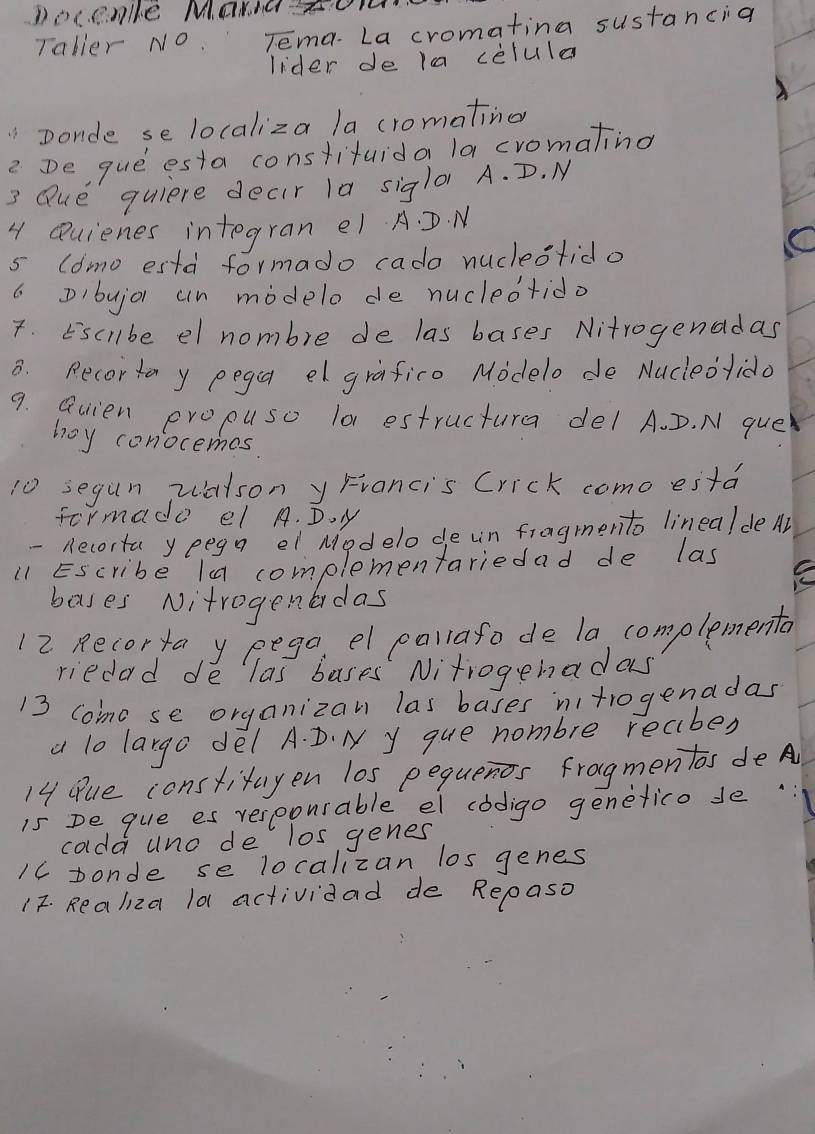 Docente Maria
Taller No. Tema. La cromatina sustancia
lider de la cèlula
1 Donde se localiza la cromatina
2 De qué esta constituida la cromatina
3 Qué quiere decir la sigla A.D.N
4 Quienes integran el A.D.N
5 Cómo está formado cada nucleótido
6 Dibuja un módelo de nucleótido
7. Escribe el nombre de las bases Nitrogenadas
8. Recorta y pega el gráfico Módelo de Nucleótido
9. Quien propuso la estructura del A.D.N que
hoy conocemos.
10 segun Watson y Francis Crick como está
formado el A.D.N
- Recorta y pega el Modelo de un fragmento lineal de
11 Escribe la complementariedad de las
bases Nitrogenadas
12 Recorta y pega el parrafo de la complementa
riedad de las bases Nitrogenadas
13 Cómo se organizan las bases nitrogenadas
a lo largo del A.D.N y que nombre reciben
14 Que constituyen los pequeños fragmentos de A
15 De que es responsable el código genético de
cada uno de los genes
16 Donde se localizan los genes
17. Realiza la actividad de Repaso